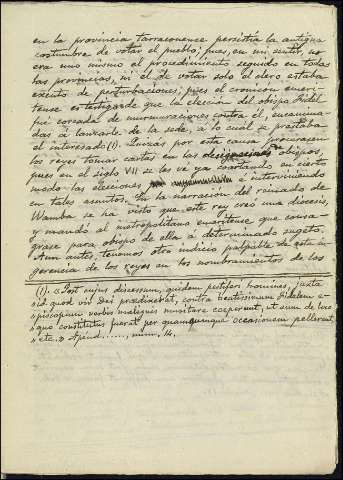 en la provincia tarraconense persistía la antigua
costumbre de votar el pueblo; pues, en mi sentir, no
era uno mismo el procedimiento seguido en todas
las provincias, ni el de votar solo el clero estaba
exento de perturbaciones; pues el cronicón emeri-
tense es testigo de que la elección del obispo Fidel
fué cercada de murmuraciones contra él, encamina-
das á lanzarle de la sede, á lo cual se prestaba
el interesado (1). Quizás por esta causa procurasen
los reyes tomar cartas en las de obispos,
pues en el siglo VII se les ve ya coartando en cierto
modo las elecciones é interviniendo
en tales asuntos. En la narración del reinado de
Wamba se ha visto que este rey creó una diócesis,
y mandó al metropolitano emeritense que consa-
grase para obispo de ella á determinado sugeto.
Aun antes, tenemos otro indicio palpable de esta in-
gerencia de los reyes en los nombramientos de los
(1). «Post cujus discessum, quidem pestiferi homines, juxta
»id quod vir Dei prædixerat, contra beatissimum Fidelem e-
»piscopum verbis malignis musitare cœperunt, ut eum de loco
»quo constitutus fuerat per quamcumque occasionem pellerent,
»etc.» Apénd......, núm. 14.